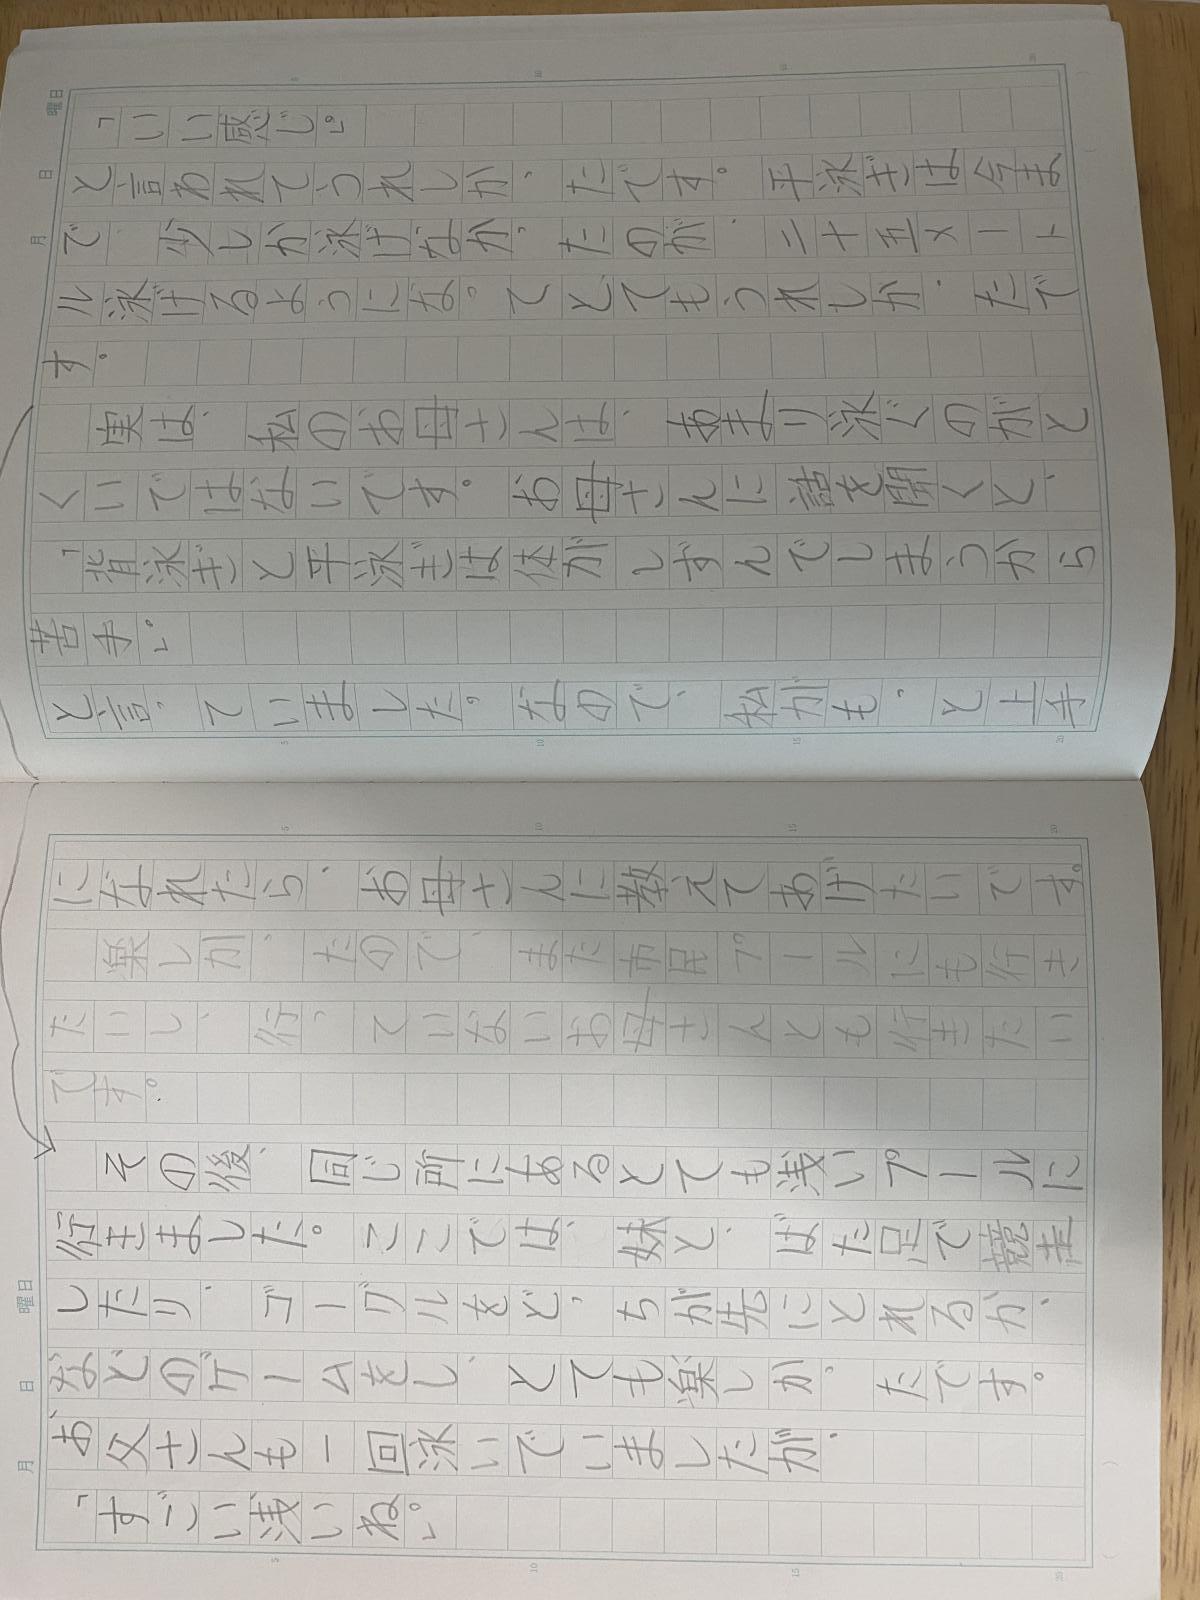 「いい感じ。」
と言われてうれしかったです。平泳ぎは今ま
で、少ししか泳げなかったのが、二十五メート
ル泳げるようになってとてもうれしかったで
す。
実は、私のお母さんは、あまり泳ぐのがと
くいではないです。お母さんに話を聞くと、
「背泳ぎと平泳ぎは体がしずんでしまうから
苦手。」
と言っていました。なので、私がもっと上手
になれたら、お母さんに教えてあげたいです。
楽しかったので、また市民プールにも行き
たいし、行っていないお母さんとも行きたい
です。
その後、同じ所にあるとても浅いプールに
行きました。ここでは、妹と、ばた足で競走
したり、ゴーグルをどっちが先にとれるか、
などのゲームをし、とても楽しかったです。
お父さんも一回泳いでいましたが、
「すごい浅いね。」
月 日 曜日
月 日 曜日
5 10 15 20
5 10 15 20
5 10 15 20
5 10 15 20